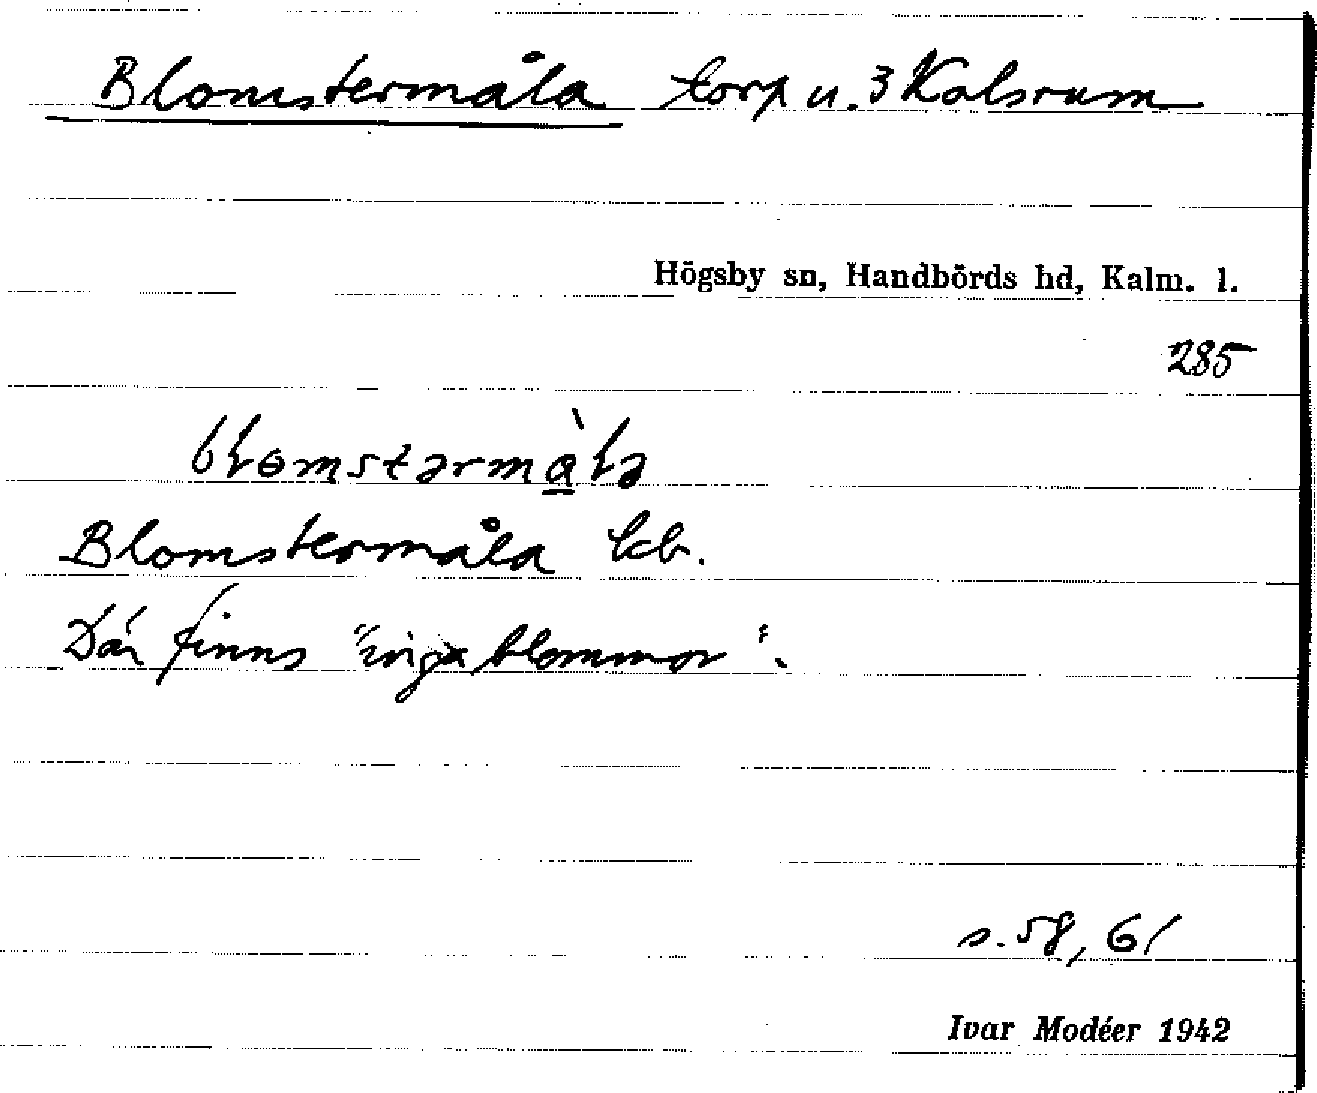 Blomstermåla torp u. 3 Kolsrum
Högsby sn, Handbörds hd, Kalm. l.
285
blomstərmàlə
Blomstermåla kb.
Där finns "inga blommor".
s. 58, 61
Ivar Modéer 1942